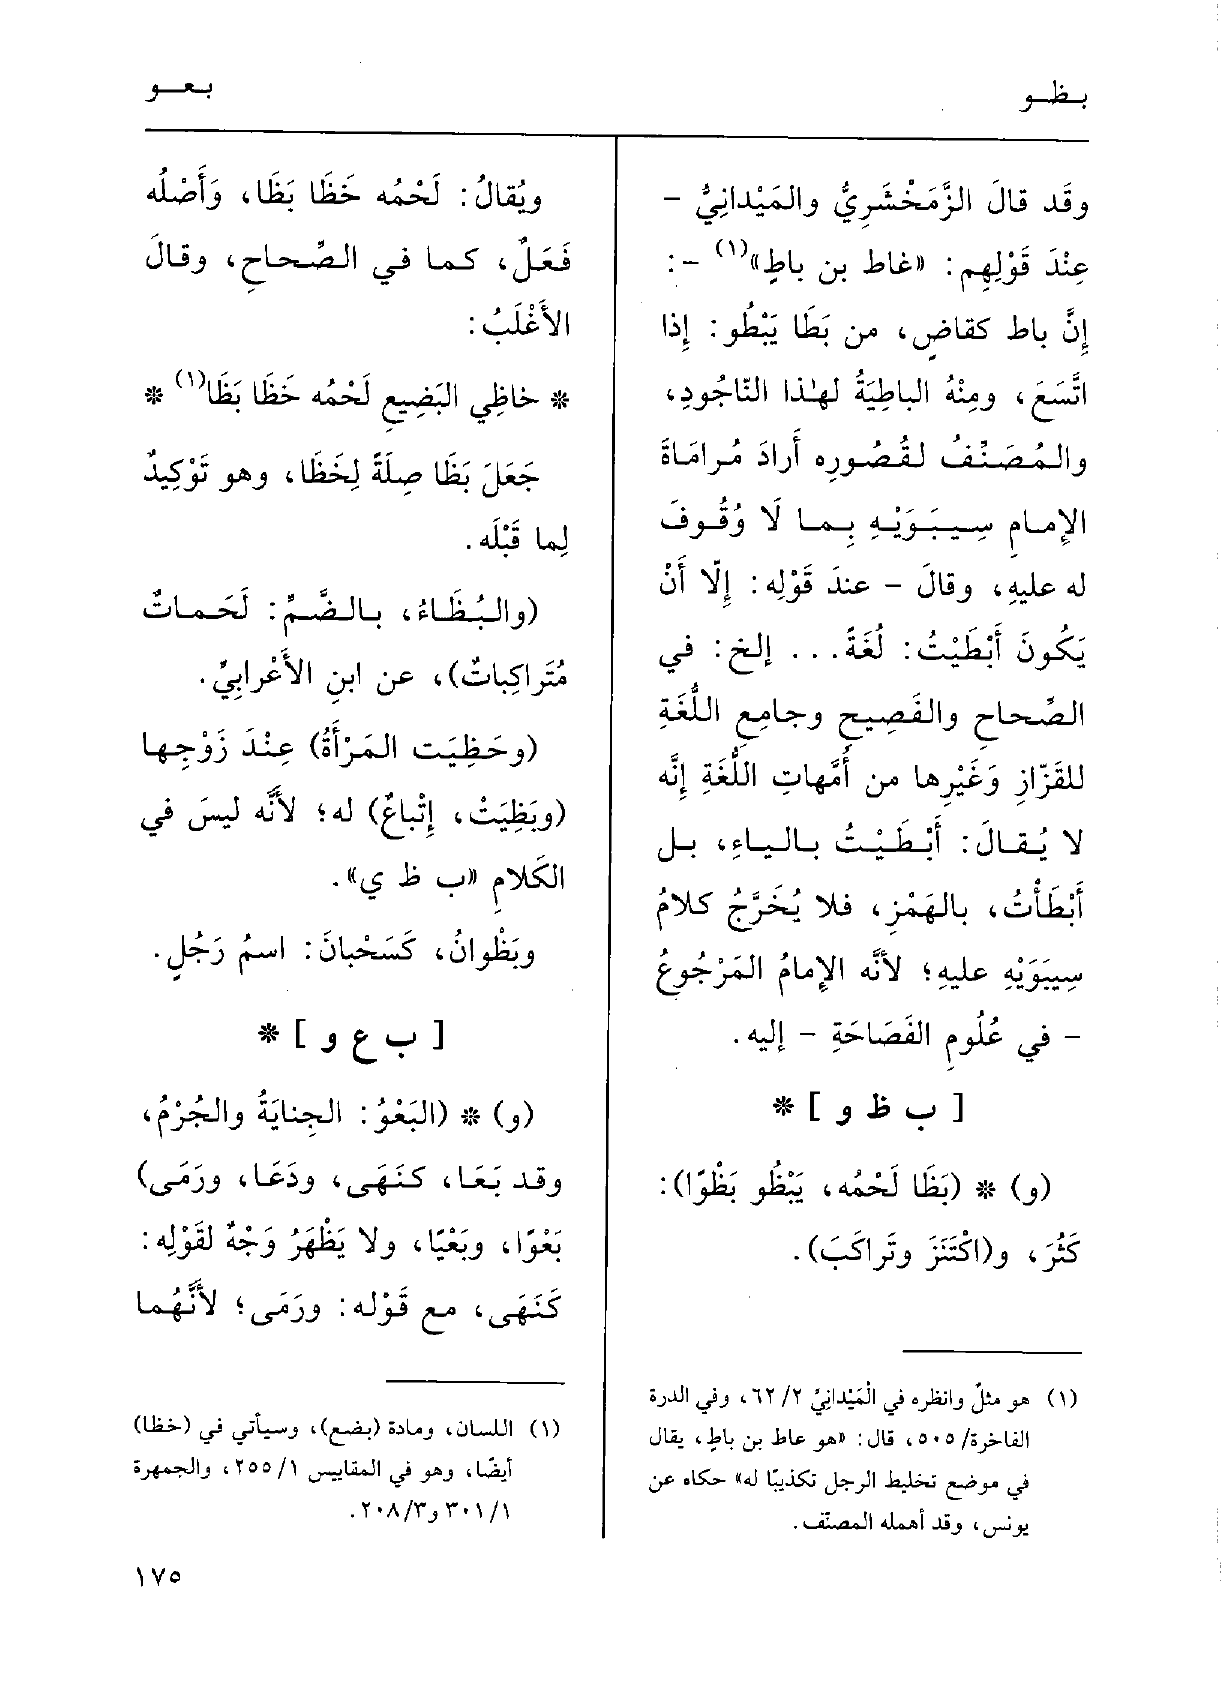 بـظـو
بـعـو
وقَد قالَ الزَّمَخْشَرِيُّ والمَيْدانِيُّ -
عِنْدَ قَوْلِهِم: «غاط بن باطٍ»(١) -:
إِنَّ باط كقاضٍ، من بَطَا يَبْطُو: إِذا
اتَّسَعَ، ومِنْهُ الباطِيَةُ لهٰذا النّاجُودِ،
والمُصَنِّفُ لقُصُورِه أَرادَ مُرامَاةَ
الإِمامِ سِيبَوَيْهِ بِما لَا وُقُوفَ
له عليهِ، وقالَ - عندَ قَوْلِه: إِلّا أَنْ
يَكُونَ أَبْطَيْتُ: لُغَةً... إلخ: في
الصِّحاحِ والفَصِيحِ وجامِعِ اللُّغَةِ
للقَزّازِ وَغَيْرِها من أُمَّهاتِ اللُّغَةِ إِنَّه
لا يُقالَ: أَبْطَيْتُ بالياءِ، بل
أَبْطَأْتُ، بالهَمْزِ، فلا يُخَرَّجُ كلامُ
سِيبَوَيْهِ عليهِ؛ لأَنَّه الإِمامُ المَرْجُوعُ
- في عُلُومِ الفَصَاحَةِ - إليه.
[ ب ظ و ] *
(و) * (بَظَا لَحْمُه، يَبْظُو بَظْوًا):
كَثُرَ، و(اكْتَنَزَ وتَراكَبَ).
(١) هو مثلٌ وانظره في الْمَيْدانِيُّ ٦٢/٢، وفي الدرة
الفاخرة/ ٥٠٥، قال: «هو عاط بن باطٍ، يقال
في موضع تخليط الرجل تكذيبًا له» حكاه عن
يونس، وقد أهمله المصنّف.
ويُقالُ: لَحْمُه خَظَا بَظَا، وَأَصْلُه
فَعَلٌ، كما في الصِّحاحِ، وقالَ
الأَغْلَبُ:
* خاظِي البَضِيعِ لَحْمُه خَظَا بَظَا(١) *
جَعَلَ بَظَا صِلَةً لِخَظَا، وهو تَوْكِيدٌ
لِما قَبْلَه.
(والبُظَاءُ، بالضَّمِّ: لَحَماتٌ
مُتَراكِباتٌ)، عن ابنِ الأَعْرابِيِّ.
(وحَظِيَت المَرْأَةُ) عِنْدَ زَوْجِها
(وبَظِيَتْ، إِتْباعٌ) له؛ لأَنَّه ليسَ في
الكَلامِ «ب ظ ي».
وبَظْوانُ، كَسَحْبانَ: اسمُ رَجُلٍ.
[ ب ع و ] *
(و) * (البَعْوُ: الجِنايَةُ والجُرْمُ،
وقد بَعَا، كنَهَى، ودَعَا، ورَمَى)
بَعْوًا، وبَعْيًا، ولا يَظْهَرُ وَجْهٌ لقَوْلِه:
كَنَهَى، مع قَوْله: ورَمَى؛ لأَنَّهُما
(١) اللسان، ومادة (بضع)، وسيأتي في (خظا)
أيضًا، وهو في المقاييس ٢٥٥/١، والجمهرة
٣٠١/١ و٢٠٨/٣.
١٧٥